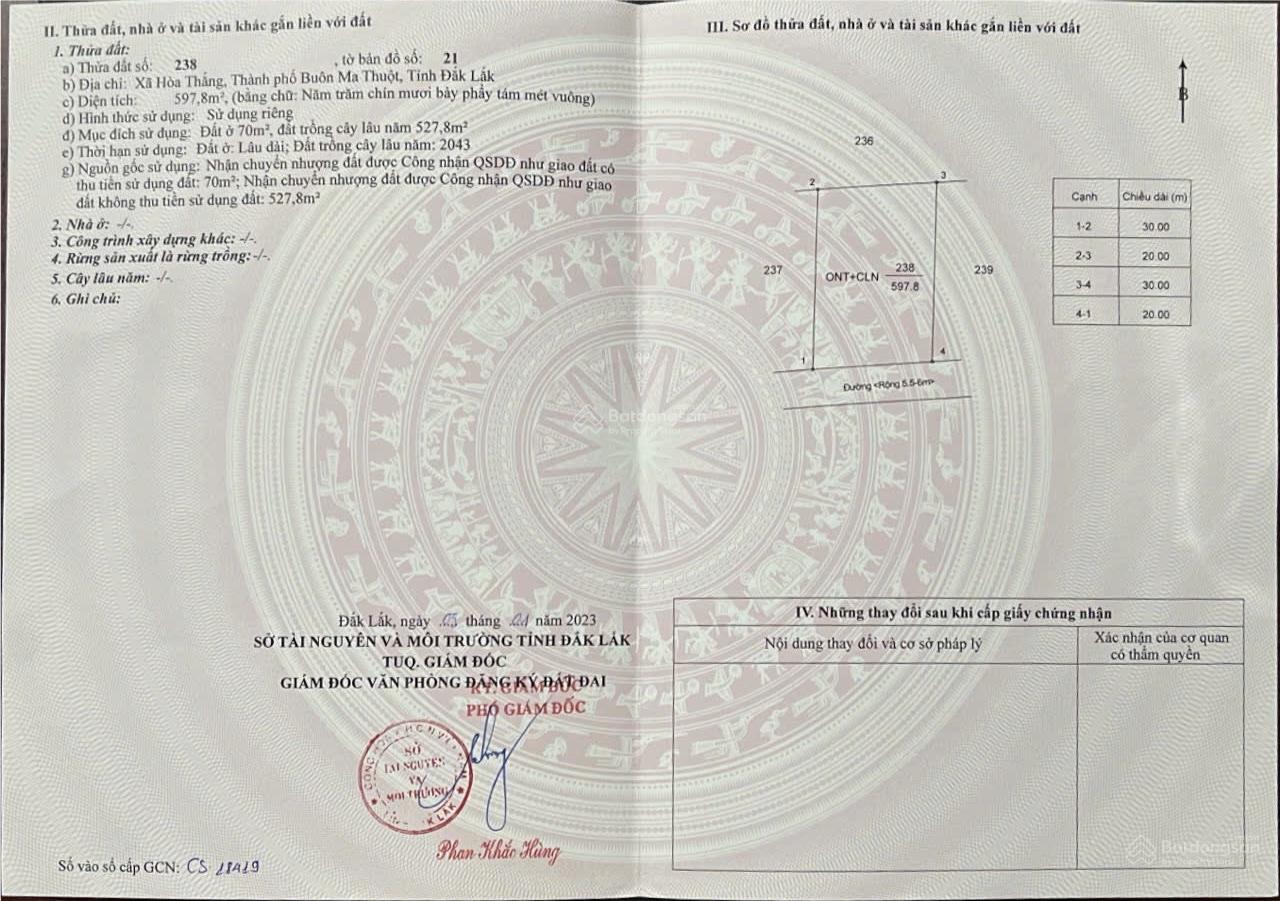 II. Thửa đất, nhà ở và tài sản khác gắn liền với đất
1. Thửa đất:
a) Thửa đất số: 238 , tờ bản đồ số: 21
b) Địa chỉ: Xã Hòa Thắng, Thành phố Buôn Ma Thuột, Tỉnh Đắk Lắk
c) Diện tích: 597,8m², (bằng chữ: Năm trăm chín mươi bảy phẩy tám mét vuông)
d) Hình thức sử dụng: Sử dụng riêng
đ) Mục đích sử dụng: Đất ở 70m², đất trồng cây lâu năm 527,8m²
e) Thời hạn sử dụng: Đất ở: Lâu dài; Đất trồng cây lâu năm: 2043
g) Nguồn gốc sử dụng: Nhận chuyển nhượng đất được Công nhận QSDĐ như giao đất có
thu tiền sử dụng đất: 70m²; Nhận chuyển nhượng đất được Công nhận QSDĐ như giao
đất không thu tiền sử dụng đất: 527,8m²
2. Nhà ở: -/-.
3. Công trình xây dựng khác: -/-.
4. Rừng sản xuất là rừng trồng: -/-.
5. Cây lâu năm: -/-.
6. Ghi chú:
Đắk Lắk, ngày 05 tháng 01 năm 2023
SỞ TÀI NGUYÊN VÀ MÔI TRƯỜNG TỈNH ĐẮK LẮK
TUQ. GIÁM ĐỐC
GIÁM ĐỐC VĂN PHÒNG ĐĂNG KÝ ĐẤT ĐAI
KT. GIÁM ĐỐC
PHÓ GIÁM ĐỐC
SỞ
TÀI NGUYÊN
VÀ
MÔI TRƯỜNG
Phan Khắc Hùng
Số vào sổ cấp GCN: CS
III. Sơ đồ thửa đất, nhà ở và tài sản khác gắn liền với đất
B
236
2
3
237
ONT+CLN 238
597.8
239
1
4
Đường <Rộng 5.5-6m>
Cạnh Chiều dài (m)
1-2 30.00
2-3 20.00
3-4 30.00
4-1 20.00
Batdongsan
IV. Những thay đổi sau khi cấp giấy chứng nhận
Nội dung thay đổi và cơ sở pháp lý
Xác nhận của cơ quan
có thẩm quyền
Batdongsan